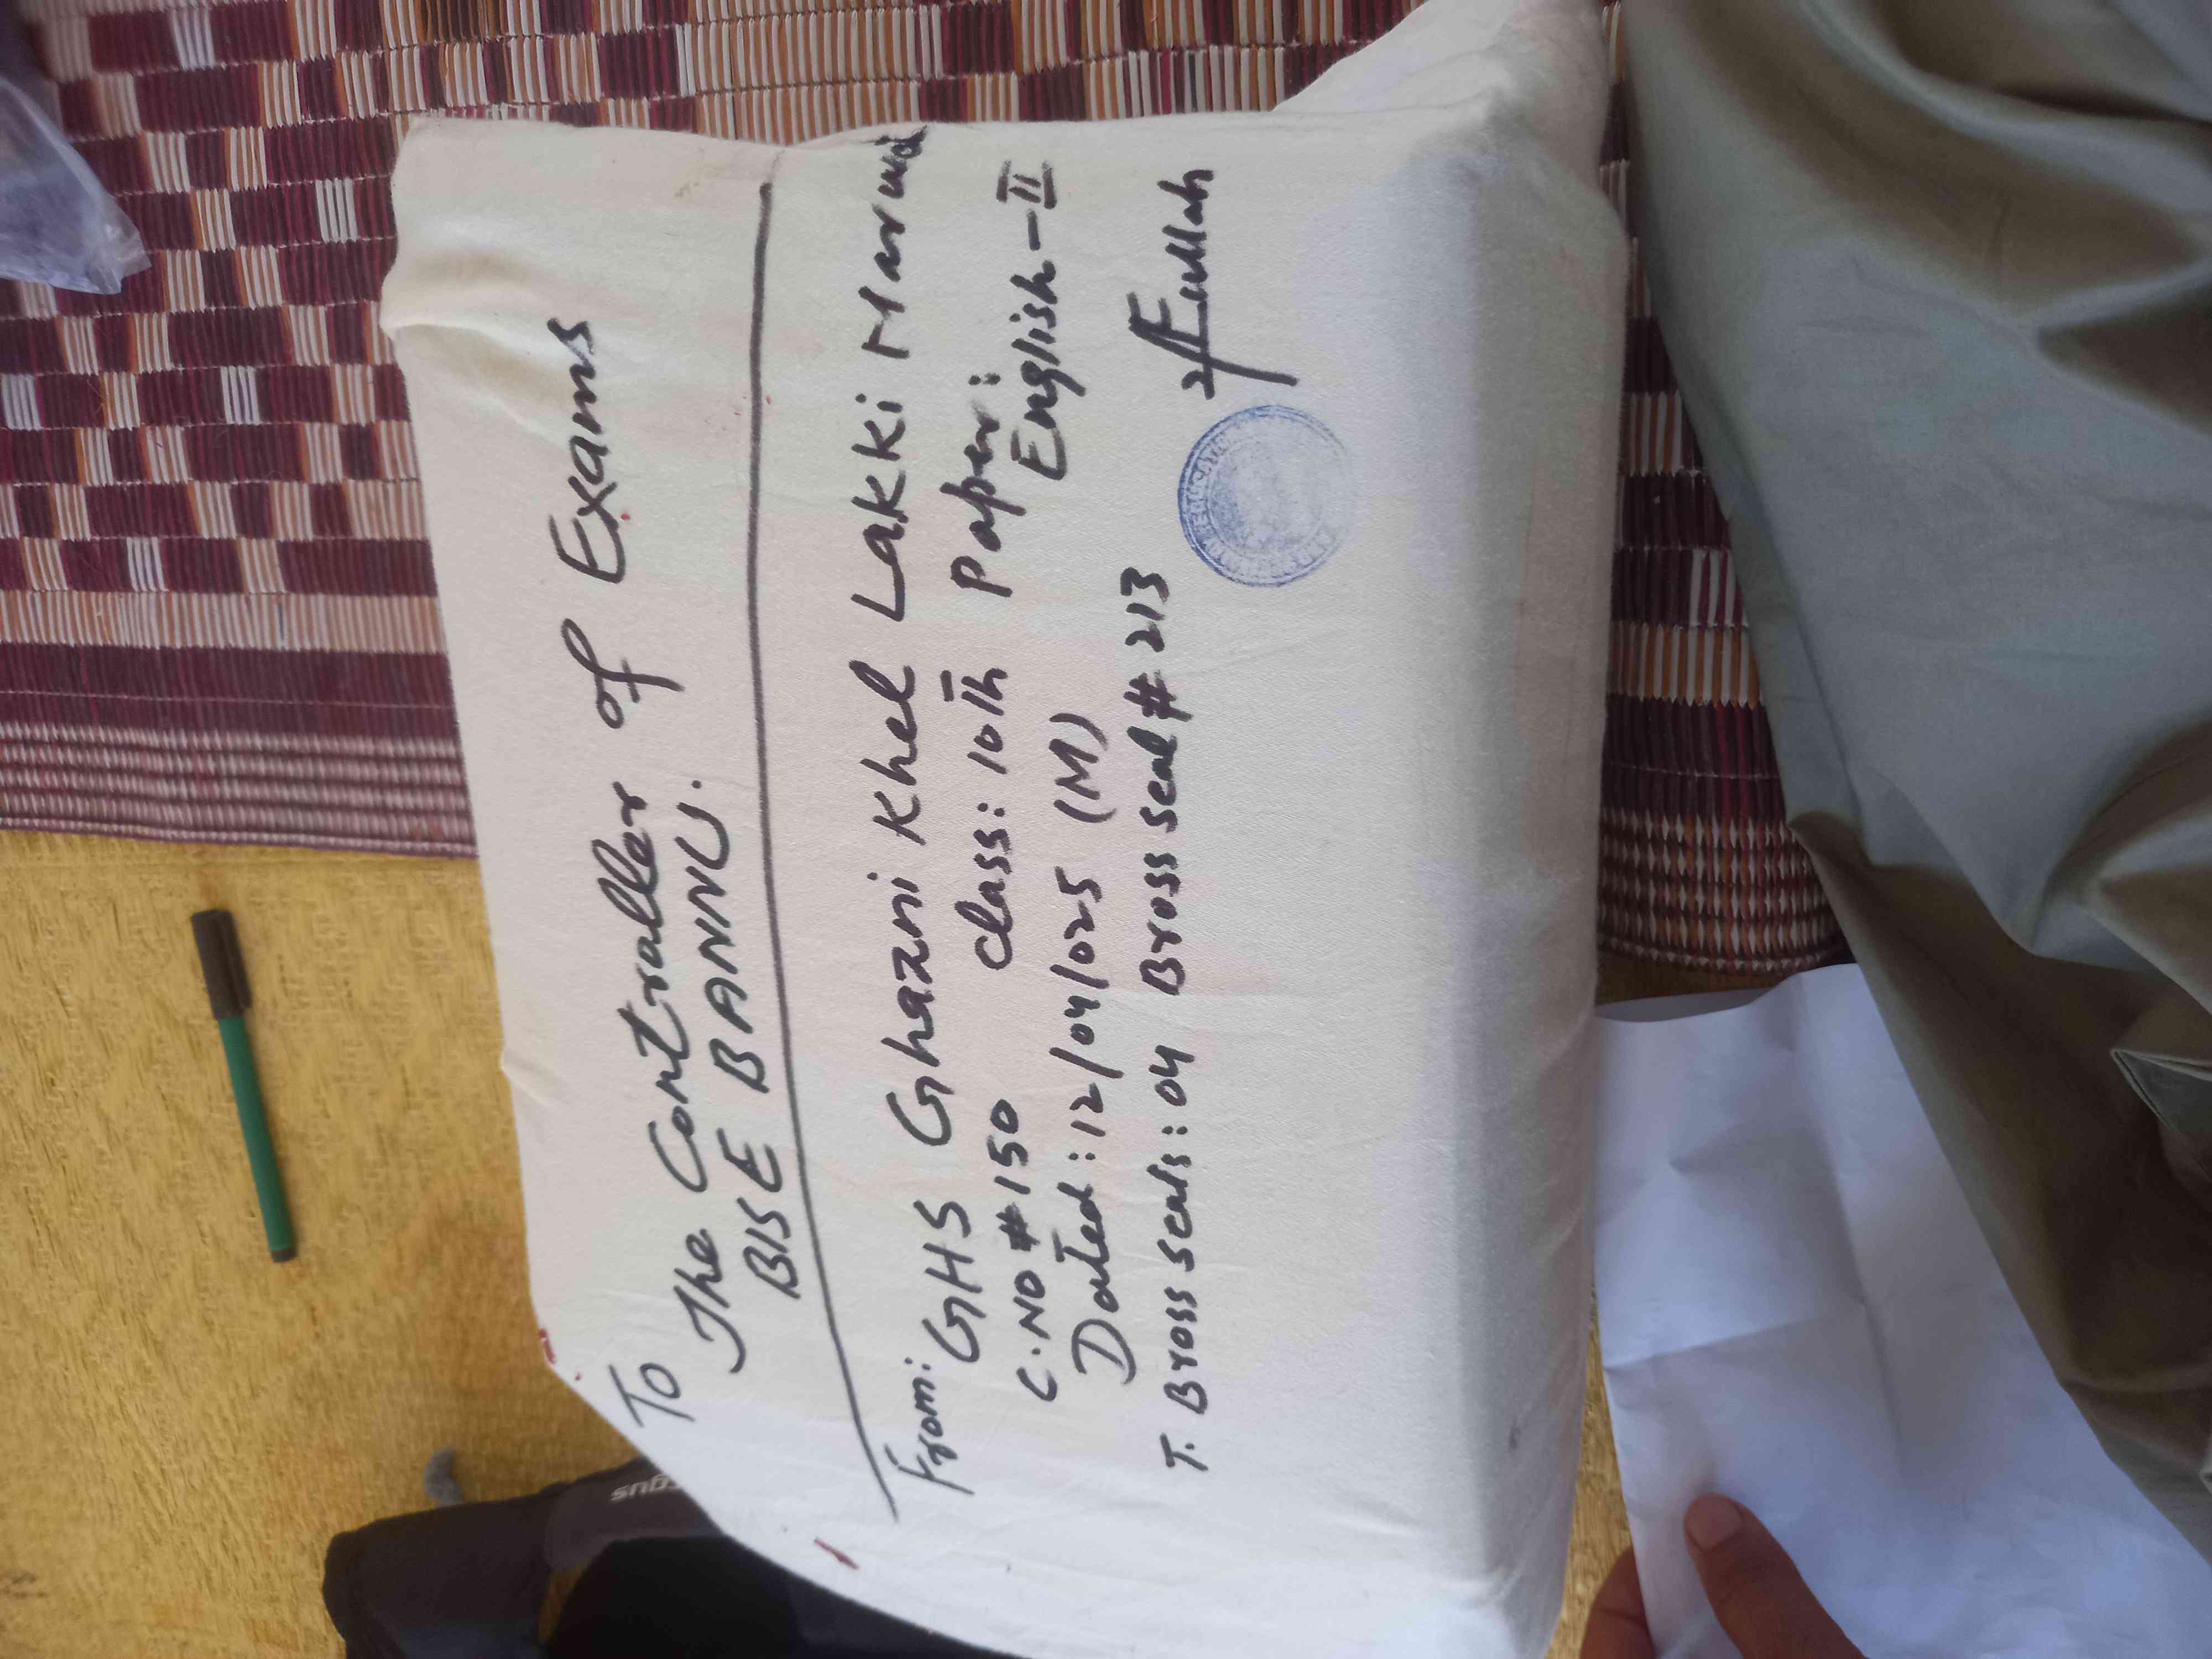 To
The Controller of Exams
BISE BANNU.
From:
GHS Ghazni Khel Lakki Marwat
C.NO # 150 Class: 10th Paper:
English-II
Dated: 12/04/025 (M)
T. Bross Seals: 04 Bross seal # 213